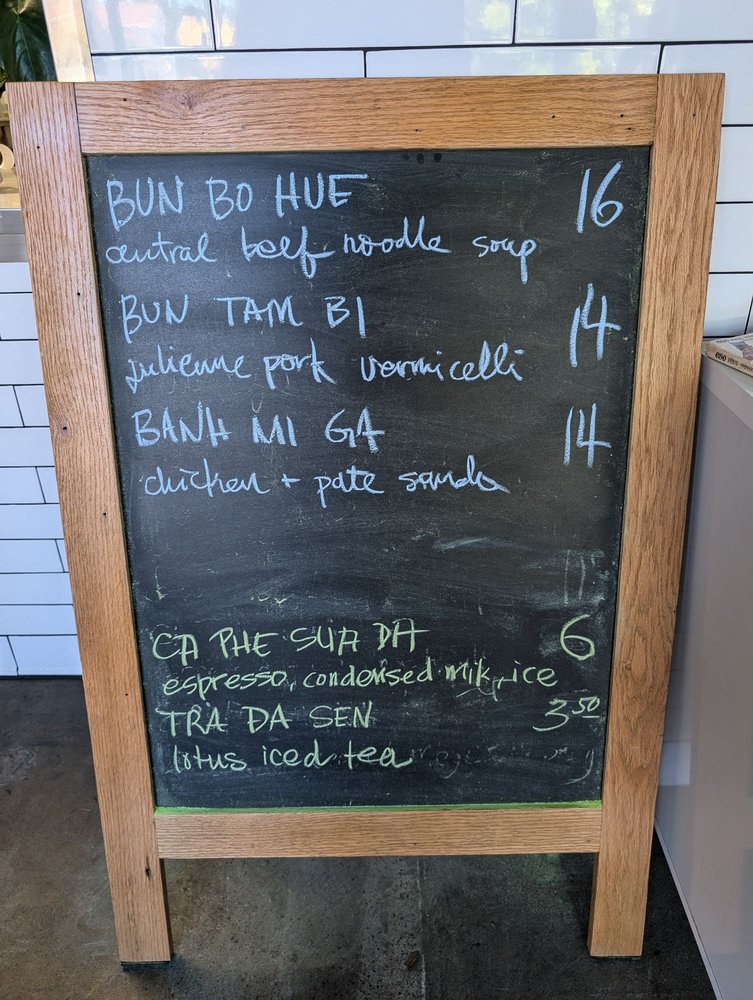 BUN BO HUE 16
central beef noodle soup
BUN TAM BI 14
julienne pork vermicelli
BANH MI GA 14
chicken + pate sando
CA PHE SUA DA 6
espresso, condensed milk, ice
TRA DA SEN 3.50
lotus iced tea